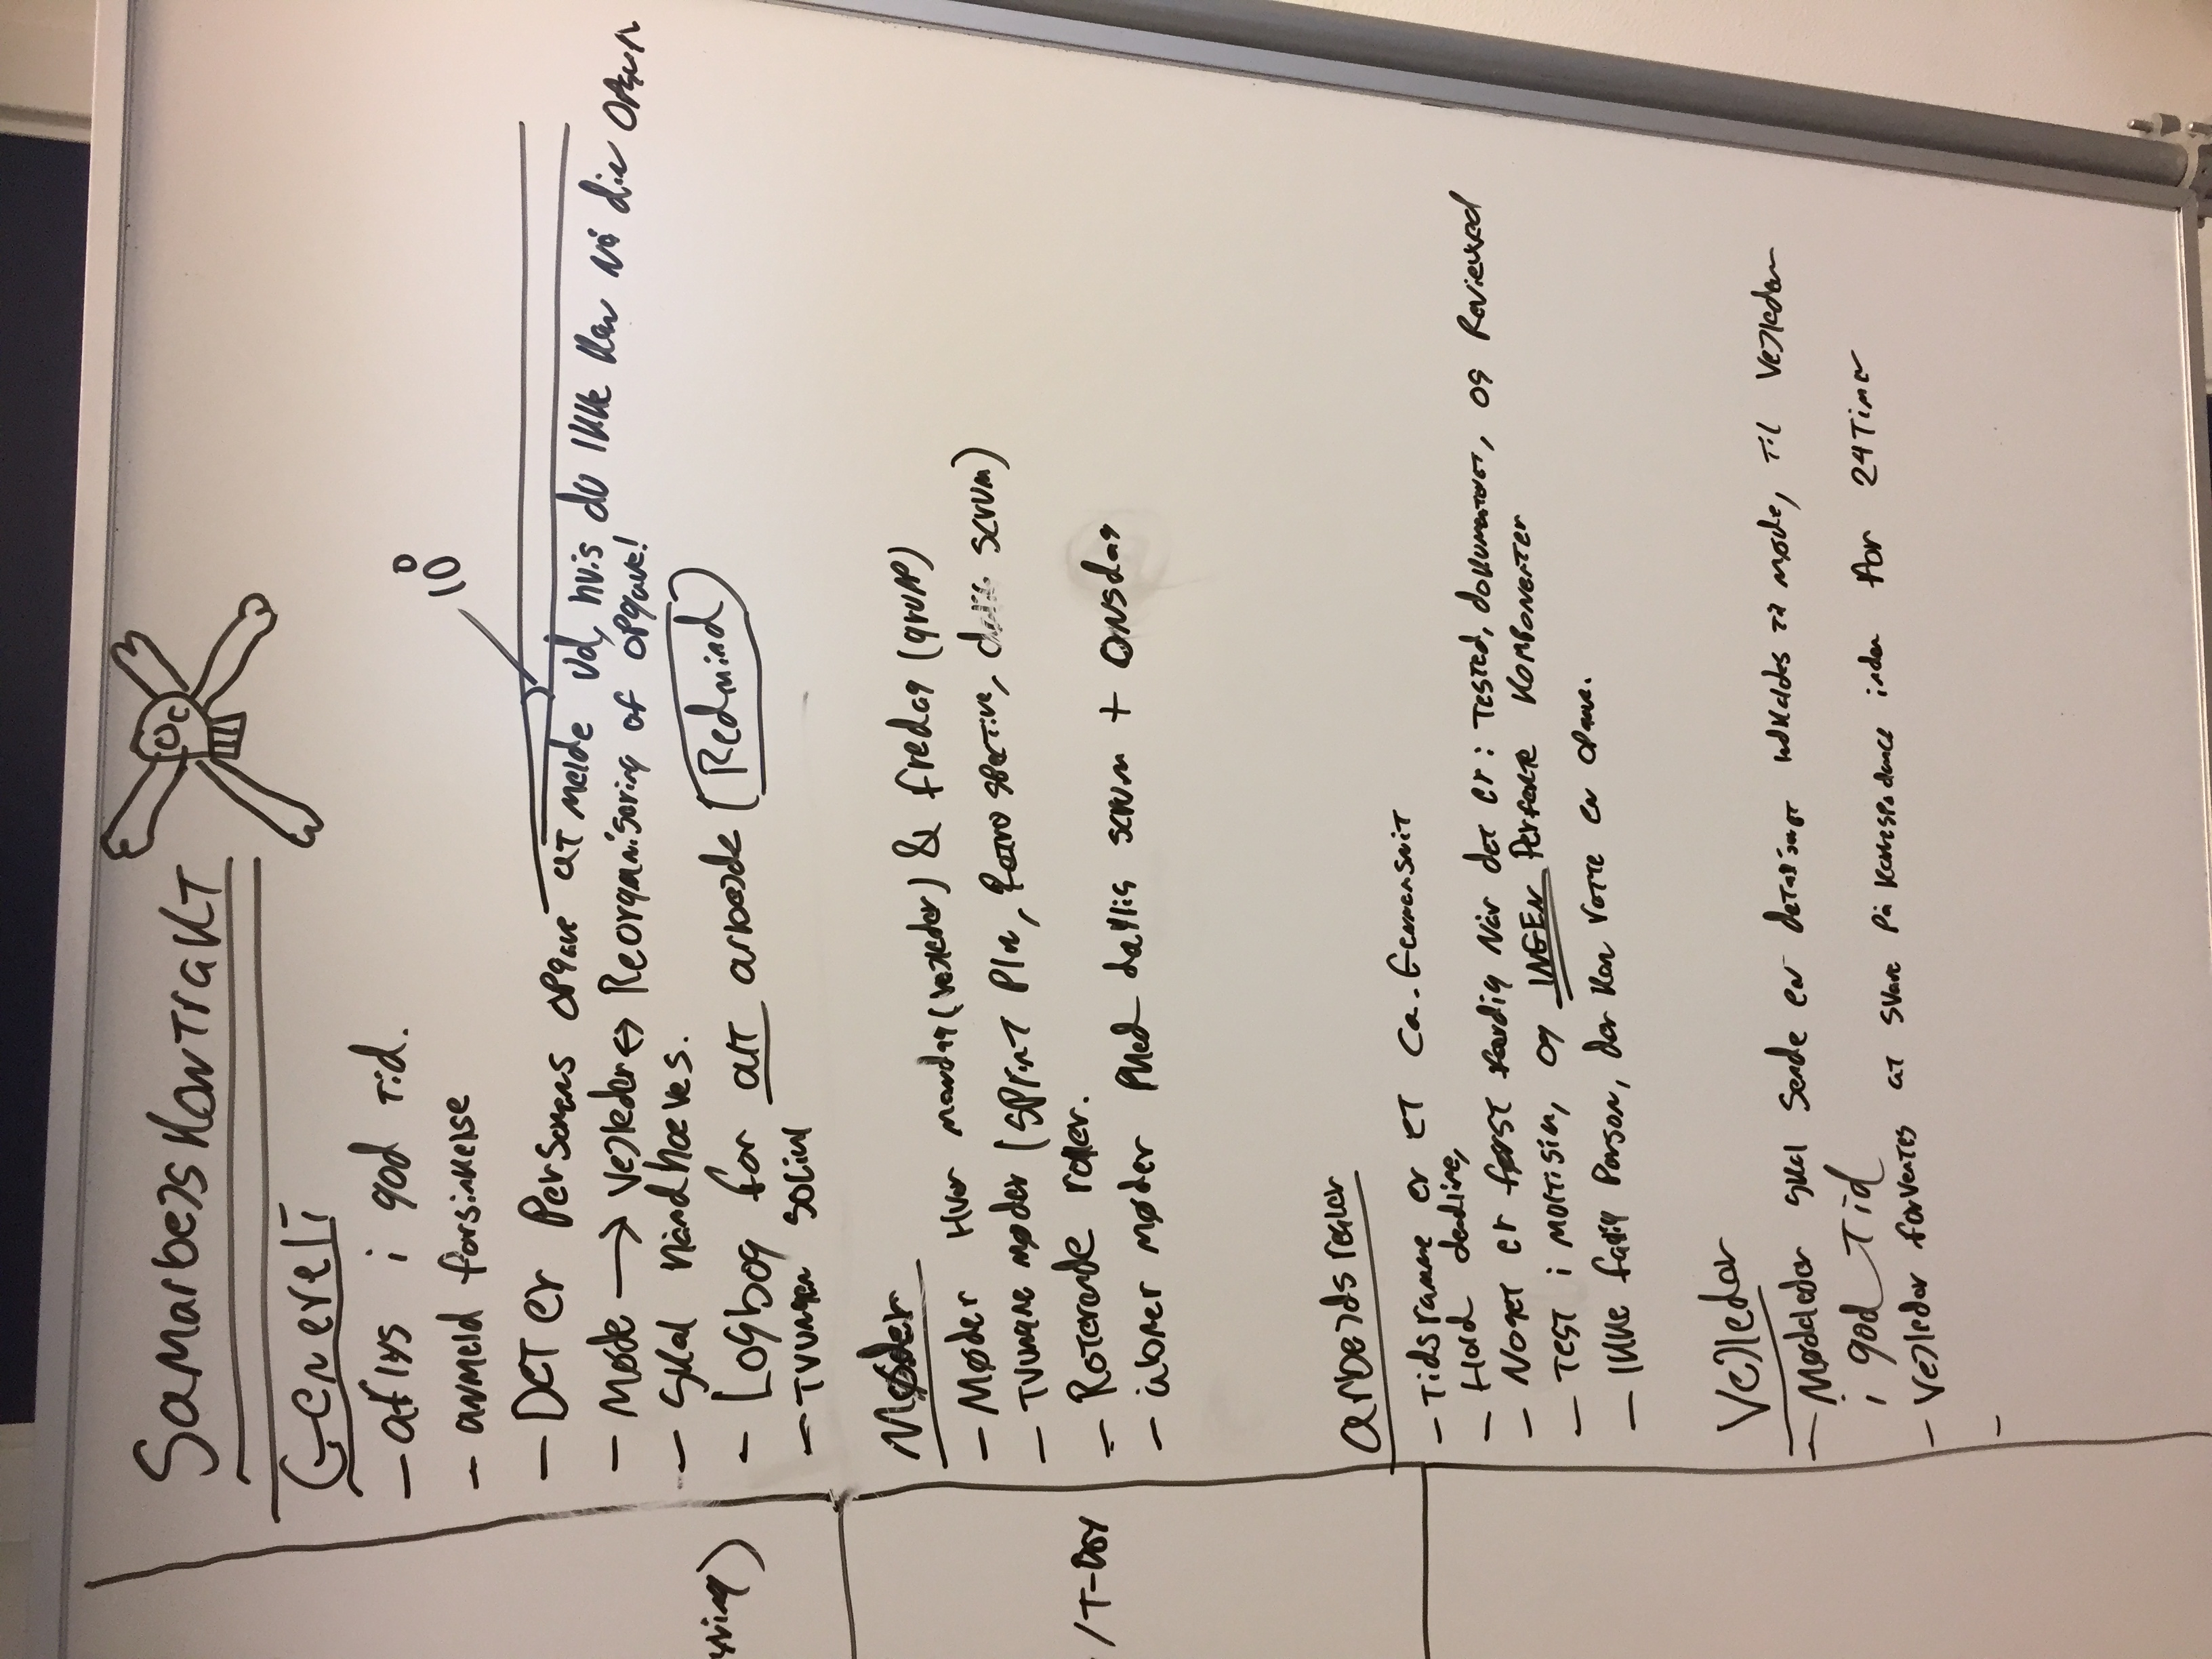 Samarbejskontrakt
Generelt
- aflys i god tid.
- anmeld forsinkelse
10°
- Det er Personens opgave at melde ud, hvis du ikke kan nå din
- Møde → Vejleder ↔ Reorganisering af opgave!
- Skal håndhæves.
yring)
- Logbog for alt arbejde (Redmind)
- Tvungen social
Møder
- Møder Hver mandag (vejleder) & fredag (grupp)
- Tvungne møder (sprint Pln, Retrospective, scrum)
/T-Day
- Roterende roller.
- åbner møder Med dayliig scrum + Onsdag
arbejdsregler
- Tidsramme er et ca. Gennensnit
- Hold deadline,
- Noget er først færdig når det er: Tested, dokumenteret, og Reviewed
- Test i moltisim, og INGEN Perfekte komponenter
- Ikke faglig Person, der kan rette en opgave.
Vejleder
- Mødeleder skal sende en indkaldes til møde, til Vejlederen
i god Tid
- Vejleder forventes at svare på inden for 24 Timer
-